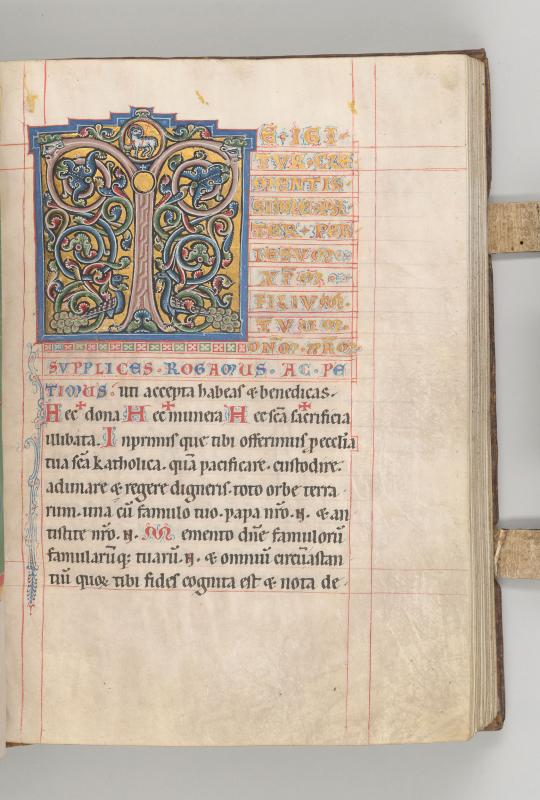 T
E · IGI ·
TUR · CLE
MENTIS ·
SIME · PA
TER · PER
IESVM ·
XPM ·
FILIVM ·
TVVM ·
DNM · NRM ·
SVPPLICES · ROGAMUS · AC · PE
TIMUS · uti accepta habeas & benedicas ·
Hec dona Hec munera Hec scã sacrificia
illibata. Inprimis que tibi offerimus p ecclia
tua scã katholica. quã pacificare. custodire.
adunare & regere digneris. toto orbe terra
rum. una cũ famulo tuo. papa nr̃o. N. & an
tistite nr̃o. N. Memento dñe famulorũ
famularũ q; tuarũ. N. & omniũ circũastan
tiũ quoꝝ tibi fides cognita est & nota de